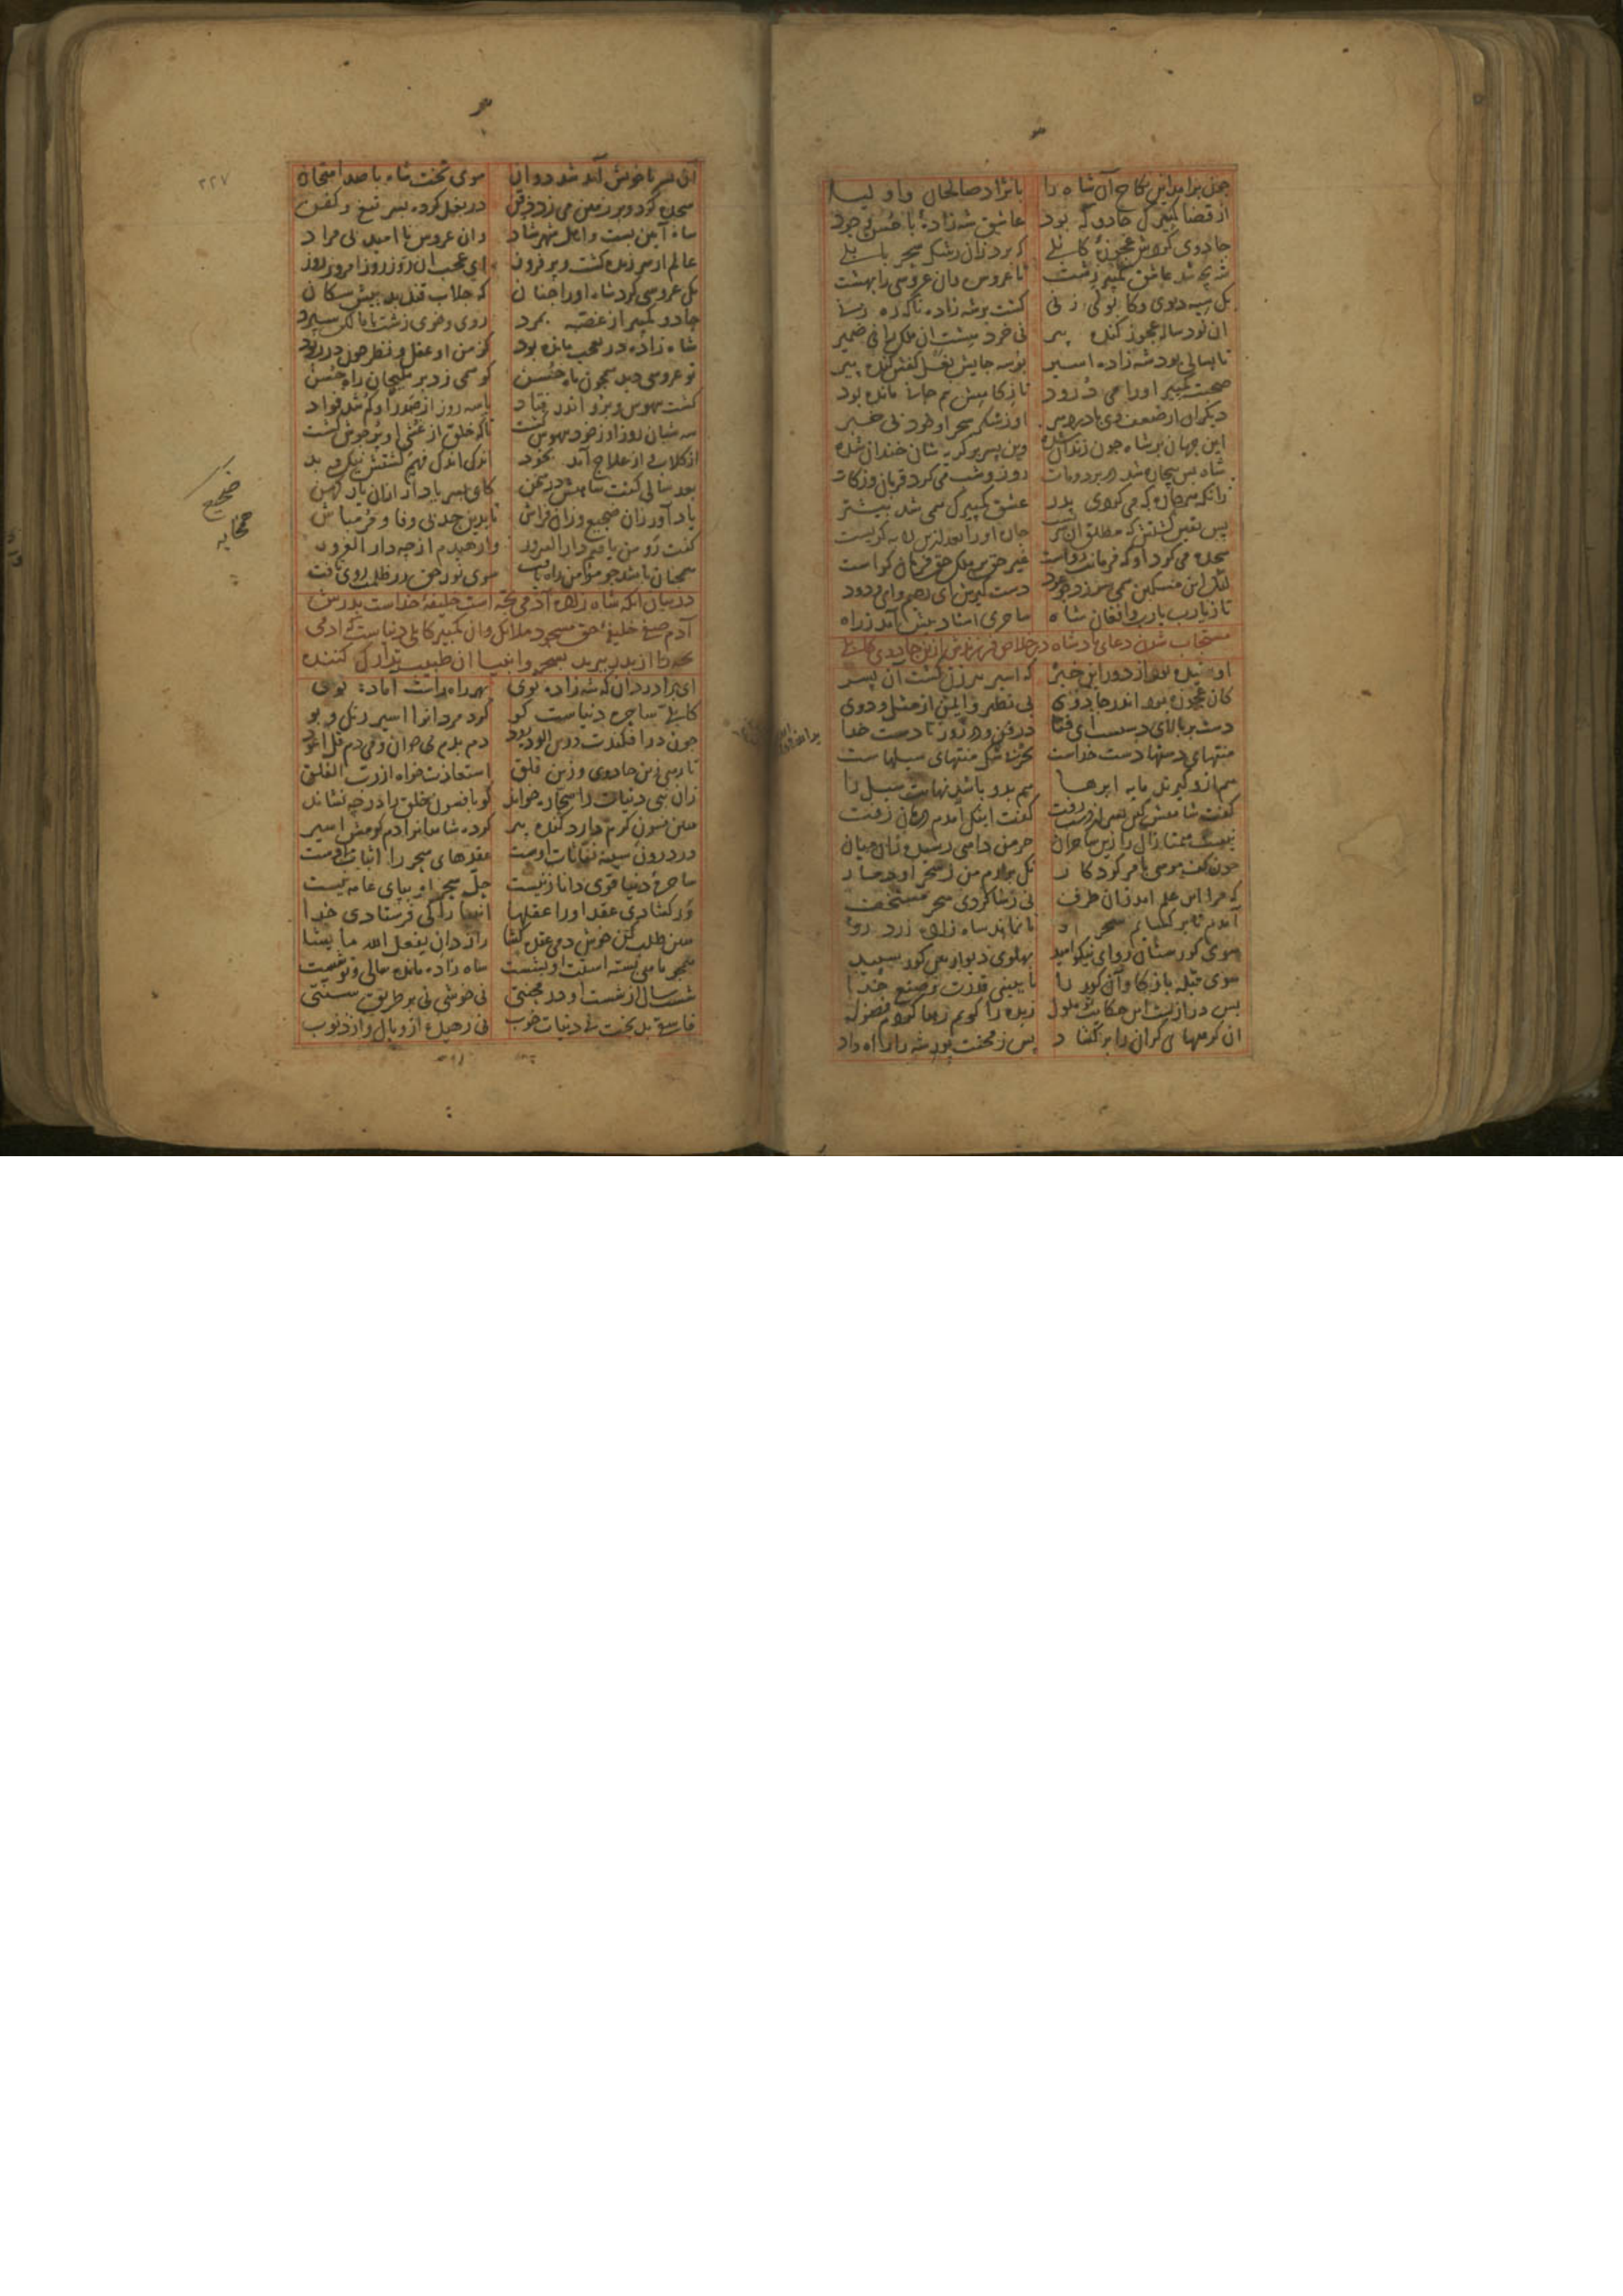 چون برآمد این نکاح آن شاه را با نژاد صالحان و اولیا
از قضا کمپیرکی جادو که بود عاشق شه زادهٔ با حسن و جود
جادوی کردش عجوزهٔ کابلی که برد زان رشک سحر بابلی
شه بچه شد عاشق کمپیر زشت تا عروس وان عروسی را بهشت
یک سیه دیوی و کابولی زنی گشت بر شه زاده ناگه ره زنی
ان نود ساله عجوز کنده پیر نی خرد هشت ان ملک را نی ضمیر
تا بسالی بود شه زاده اسیر بوسه جایش نعل کفش کنده پیر
صحبت کمپیر اورا می درود تا ز کاهش نیم جانی مانده بود
دیکران از ضعف وی با درد سر او ز سکر سحر او خود بی خبر
این جهان بر شاه چون زندان شده وین پسر بر کریه شان خندان شده
شاه بس بیچاره شد در برد و مات روز و شب می کرد قربان و زکات
زانکه هر چاره که می کردی پدر عشق کمپیرک همی شد بیشتر
پس یقین کشتش که مطلق آن سریست چاره اورا بعد ازین لابه کریست
سجده می کرد او که فرمانت رواست غیر حق بر ملک حق فرمان کراست
لیک این مسکین همی سوزد چو عود دست کیرش ای رحیم و ای ودود
تا ز یارب یارب و افغان شاه ساحری استاد پیش آمد ز راه
مستجاب شدن دعای پادشاه در خلاص فرزندش ازین جادوی کابلی
او شنیده بود از دور این خبر که اسیر پیرزن کشت آن پسر
کان عجوزه بود اندر جادوی بی نظیر و ایمن از مثل و دوی
دست بر بالای دستست ای فتی در فن و در زور تا دست خدا
منتهای دستها دست خداست بحر بی شک منتهای سیلهاست
هم ازو کیرند مایه ابرها هم بدو باشد نهایت سیل را
کفت شاهش کین پسر از دست رفت کفت اینک آمدم درمان زفت
نیست همتا زال را زین ساحران جز من داهی رسیده زان کران
چون کف موسی بامر کردکار نک برارم من ز سحر او دمار
که مرا این علم امد زان طرف نی ز شاکردی سحر مستخف
آمدم تا بر کشایم سحر او تا نماند شاه زاده زرد رو
سوی کورستان برو ای نیکو امید پهلوی دیوار هین کور سپید
سوی قبله باز کاو آن کور را تا ببینی قدرت و صنع خدا
بس درازست این حکایت تو ملول زبده را کویم رها کردم فضول
ان کره های کران را بر کشاد پس ز محنت پور شه را راه داد
آن پسر با خویش آمد شد دوان سوی تخت شاه با صد امتحان
سجده کرد و بر زمین می زد ذقن در بغل کرده پسر تیغ و کفن
شاه آیین بست و اهل شهر شاد وان عروس نا امید بی مراد
عالم از سر زنده کشت و بر فروز ای عجب ان روز روز امروز روز
یک عروسی کرد شاه اورا چنان که جلاب قند بد پیش سکان
جادو کمپیر از غصه بمرد روی و خوی زشت با مالک سپرد
شاه زاده در تعجب مانده بود کز من او عقل و نظر چون در ربود
نو عروسی دید همچون ماه حسن کو همی زد بر ملیحان راه حسن
کشت بیهوش و برو اندر فتاد تا سه روز از صدر او کم شد فواد
سه شبان روز او ز خود بیهوش کشت تا که خلق از غشی او پر جوش کشت
از کلاب و از علاج آمد بخود اندک اندک فهم کشتش نیک و بد
بعد سالی کفت شاهش در سخن کای پسر یاد آر ازان یار کهن
یاد آور زان ضجیع و زان فراش تا بدین حد بی وفا و مر مباش
کفت رو من یافتم دار السرور وا رهیدم از چه دار الغرور
همچنان باشد چو مؤمن راه یافت سوی نور حق ز ظلمت روی تافت
در بیان آنکه شاه زاده آدمی بچه است خلیفهٔ خداست پدرش
آدم صفی خلیفهٔ حق مسجود ملایک و آن کمپیر کابلی دنیاست که آدمی
بچه را از پدر ببرید بسحر و انبیا آن طبیب تدارک کننده
ای برادر دان که شه زاده توی
کابلی ساحره دنیاست کو کرد مردانرا اسیر رنک و بو
چون در افکندت درین الوده رود دم بدم می خوان و می دم قل اعوذ
تا رهی زین جادوی و زین قلق استعاذت خواه از رب الفلق
زان نبی دنیات را سحاره خواند کو بافسون خلق را در چه نشاند
هین فسون کرم دارد کنده پیر کرده شاهانرا دم کرمش اسیر
در درون سینه نفاثات اوست عقدهای سحر را اثبات اوست
ساحرهٔ دنیا قوی دانا زنیست حل سحر او بپای عامه نیست
ور کشادی عقد اورا عقلها انبیا را کی فرستادی خدا
هین طلب کن خوش دمی عقده کشا راز دان یفعل الله ما یشا
همچو ماهی بسته است او بشست شاه زاده ماند سالی و تو شست
شست سال از شست او در محنتی نی خوشی نی بر طریق سنتی
فاسقی بد بخت نی دنیات خوب نی رهیده از وبال و از ذنوب
صحیح
۲۲۷